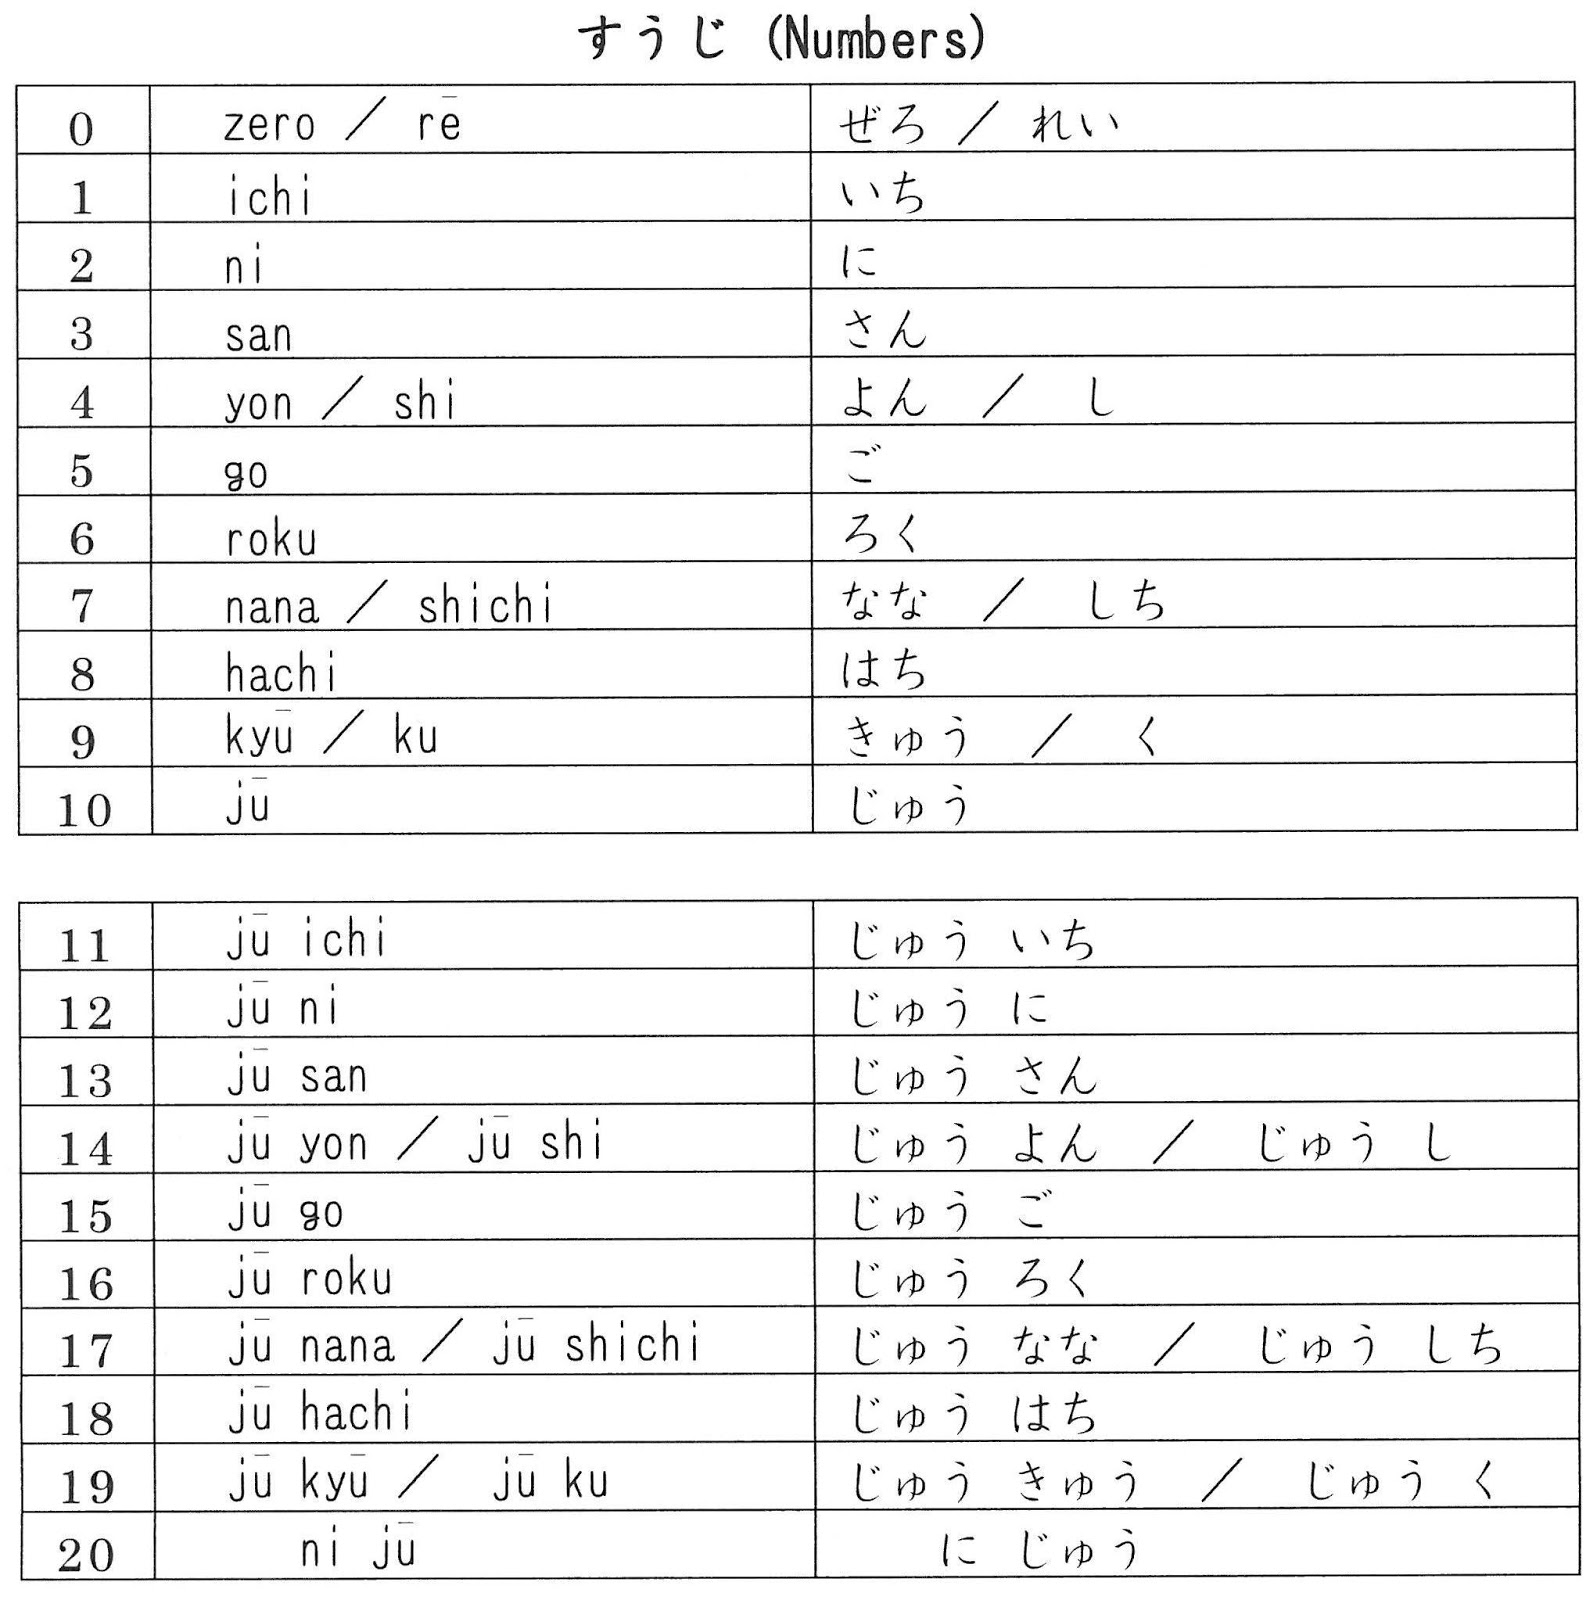 すうじ (Numbers)
0 zero / rē ぜろ / れい
1 ichi いち
2 ni に
3 san さん
4 yon / shi よん / し
5 go ご
6 roku ろく
7 nana / shichi なな / しち
8 hachi はち
9 kyū / ku きゅう / く
10 jū じゅう
11 jū ichi じゅう いち
12 jū ni じゅう に
13 jū san じゅう さん
14 jū yon / jū shi じゅう よん / じゅう し
15 jū go じゅう ご
16 jū roku じゅう ろく
17 jū nana / jū shichi じゅう なな / じゅう しち
18 jū hachi じゅう はち
19 jū kyū / jū ku じゅう きゅう / じゅう く
20 ni jū に じゅう